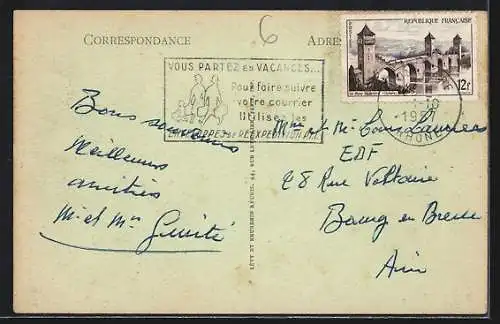 CORRESPONDANCE
6
VOUS PARTEZ en VACANCES...
Pour faire suivre
votre courrier
Utilisez les
ENVELOPPES de RÉEXPÉDITION
REPUBLIQUE FRANÇAISE
12f
1957
RHONE
Bons souvenirs
Meilleures
amitiés
M. et Mme
Mme et Mr
EDF
28 Rue Voltaire
Bourg en Bresse
Ain